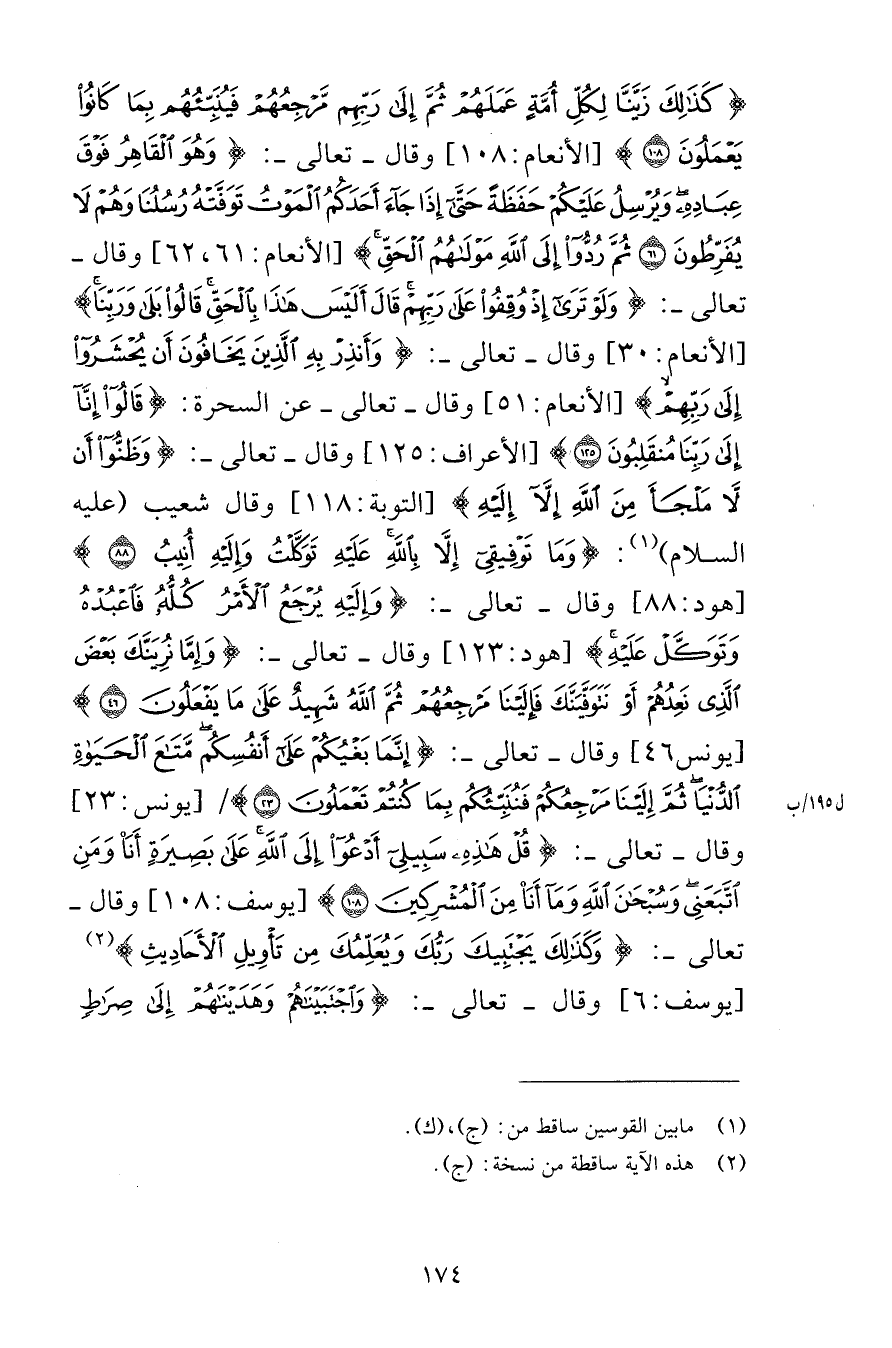 ﴿ كَذَٰلِكَ زَيَّنَّا لِكُلِّ أُمَّةٍ عَمَلَهُمْ ثُمَّ إِلَىٰ رَبِّهِم مَّرْجِعُهُمْ فَيُنَبِّئُهُم بِمَا كَانُوا۟
يَعْمَلُونَ ۝١٠٨ ﴾ [الأنعام: ١٠٨] وقال ـ تعالى ـ: ﴿ وَهُوَ ٱلْقَاهِرُ فَوْقَ
عِبَادِهِۦۖ وَيُرْسِلُ عَلَيْكُمْ حَفَظَةً حَتَّىٰٓ إِذَا جَآءَ أَحَدَكُمُ ٱلْمَوْتُ تَوَفَّتْهُ رُسُلُنَا وَهُمْ لَا
يُفَرِّطُونَ ۝٦١ ثُمَّ رُدُّوٓا۟ إِلَى ٱللَّهِ مَوْلَىٰهُمُ ٱلْحَقِّۚ ﴾ [الأنعام: ٦١، ٦٢] وقال ـ
تعالى ـ: ﴿ وَلَوْ تَرَىٰٓ إِذْ وُقِفُوا۟ عَلَىٰ رَبِّهِمْۚ قَالَ أَلَيْسَ هَٰذَا بِٱلْحَقِّۚ قَالُوا۟ بَلَىٰ وَرَبِّنَاۚ ﴾
[الأنعام: ٣٠] وقال ـ تعالى ـ: ﴿ وَأَنذِرْ بِهِ ٱلَّذِينَ يَخَافُونَ أَن يُحْشَرُوٓا۟
إِلَىٰ رَبِّهِمْۙ ﴾ [الأنعام: ٥١] وقال ـ تعالى ـ عن السحرة: ﴿ قَالُوٓا۟ إِنَّآ
إِلَىٰ رَبِّنَا مُنقَلِبُونَ ۝١٢٥ ﴾ [الأعراف: ١٢٥] وقال ـ تعالى ـ: ﴿ وَظَنُّوٓا۟ أَن
لَّا مَلْجَأَ مِنَ ٱللَّهِ إِلَّآ إِلَيْهِ ﴾ [التوبة: ١١٨] وقال شعيب (عليه
السلام)(١): ﴿ وَمَا تَوْفِيقِىٓ إِلَّا بِٱللَّهِۚ عَلَيْهِ تَوَكَّلْتُ وَإِلَيْهِ أُنِيبُ ۝٨٨ ﴾
[هود: ٨٨] وقال ـ تعالى ـ: ﴿ وَإِلَيْهِ يُرْجَعُ ٱلْأَمْرُ كُلُّهُۥ فَٱعْبُدْهُ
وَتَوَكَّلْ عَلَيْهِۚ ﴾ [هود: ١٢٣] وقال ـ تعالى ـ: ﴿ وَإِمَّا نُرِيَنَّكَ بَعْضَ
ٱلَّذِى نَعِدُهُمْ أَوْ نَتَوَفَّيَنَّكَ فَإِلَيْنَا مَرْجِعُهُمْ ثُمَّ ٱللَّهُ شَهِيدٌ عَلَىٰ مَا يَفْعَلُونَ ۝٤٦ ﴾
[يونس٤٦] وقال ـ تعالى ـ: ﴿ إِنَّمَا بَغْيُكُمْ عَلَىٰٓ أَنفُسِكُمۖ مَّتَٰعَ ٱلْحَيَوٰةِ
ٱلدُّنْيَاۖ ثُمَّ إِلَيْنَا مَرْجِعُكُمْ فَنُنَبِّئُكُم بِمَا كُنتُمْ تَعْمَلُونَ ۝٢٣ ﴾/ [يونس: ٢٣]
ل١٩٥/ب
وقال ـ تعالى ـ: ﴿ قُلْ هَٰذِهِۦ سَبِيلِىٓ أَدْعُوٓا۟ إِلَى ٱللَّهِۚ عَلَىٰ بَصِيرَةٍ أَنَا۠ وَمَنِ
ٱتَّبَعَنِىۖ وَسُبْحَٰنَ ٱللَّهِ وَمَآ أَنَا۠ مِنَ ٱلْمُشْرِكِينَ ۝١٠٨ ﴾ [يوسف: ١٠٨] وقال ـ
تعالى ـ: ﴿ وَكَذَٰلِكَ يَجْتَبِيكَ رَبُّكَ وَيُعَلِّمُكَ مِن تَأْوِيلِ ٱلْأَحَادِيثِ ﴾(٢)
[يوسف: ٦] وقال ـ تعالى ـ: ﴿ وَٱجْتَبَيْنَٰهُمْ وَهَدَيْنَٰهُمْ إِلَىٰ صِرَٰطٍ
(١) مابين القوسين ساقط من: (ج)، (ك).
(٢) هذه الآية ساقطة من نسخة: (ج).
١٧٤